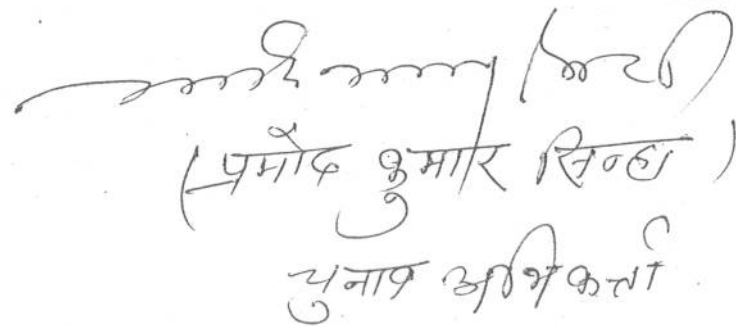 (प्रमोद कुमार सिन्हा)
चुनाव अभिकर्त्ता